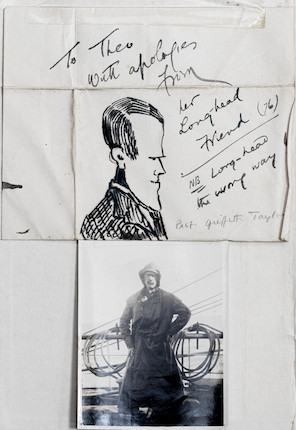 To Theo
With apologies
from
her
Longhead
Friend (76)
NB Long-head
the wrong way
Griffith Taylor